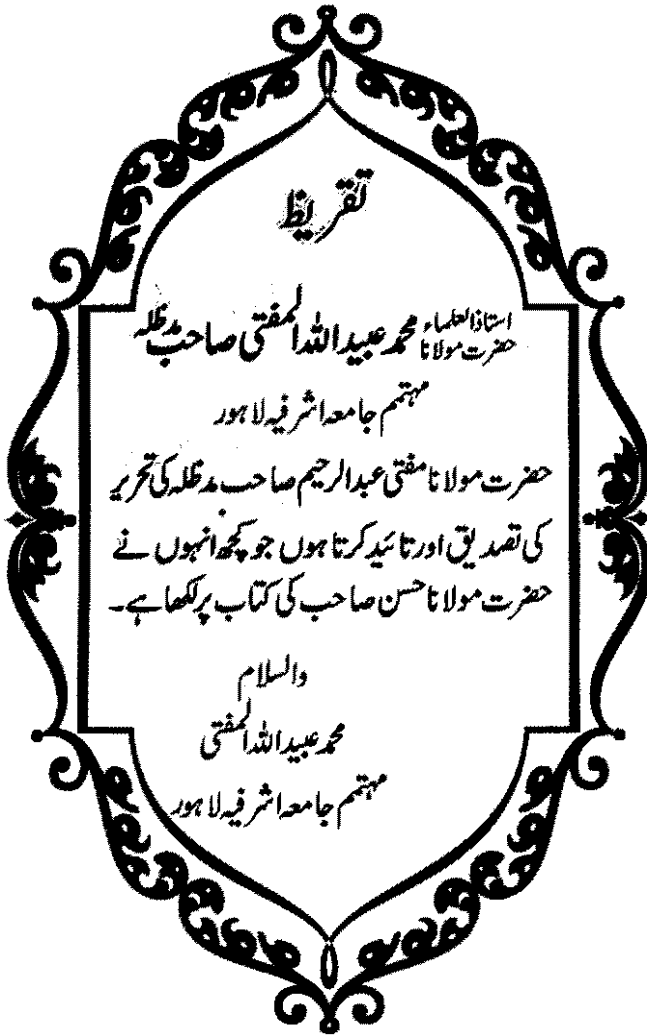 تقریظ
استاذ العلماء حضرت مولانا محمد عبید اللہ المفتی صاحب مدظلہ
مہتمم جامعہ اشرفیہ لاہور
حضرت مولانا مفتی عبدالرحیم صاحب مدظلہ کی تحریر
کی تصدیق اور تائید کرتا ہوں جو کچھ انہوں نے
حضرت مولانا حسن صاحب کی کتاب پر لکھا ہے۔
والسلام
محمد عبید اللہ المفتی
مہتمم جامعہ اشرفیہ لاہور